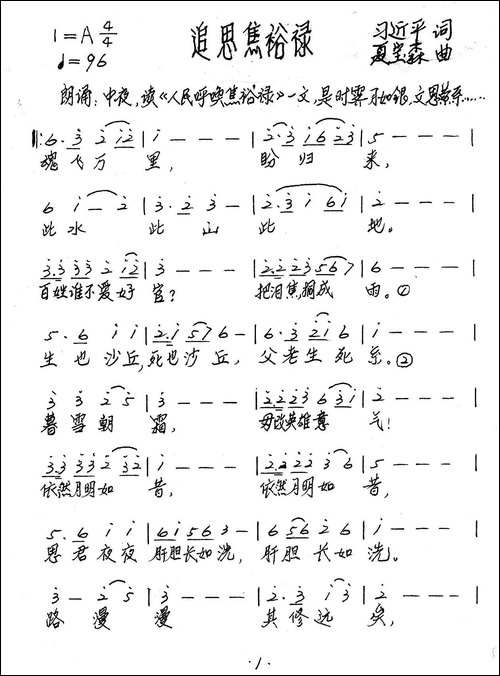 1=A 4/4
♩=96
追思焦裕禄
习近平 词
夏宝森 曲
朗诵：中夜，读《人民呼唤焦裕禄》一文，是时霁月如银，文思萦系……
‖: 6 · 3 2 1 2 | 1 — — — | 2 · 3 1 6 2 3 | 5 — — — |
魂飞万里， 盼归来，
6 1 — 2 | 3 · 2 3 — | 2 · 3 1 6 1 | 2 — — — |
此水 此山 此 地。
3 · 3 3 3 2 1 2 | 3 — — — | 2 · 2 2 3 5 6 7 | 6 — — — |
百姓谁不爱好官？ 把泪焦桐成雨。①
5 · 6 1 1 | 2 · 1 5 7 6 — | 6 · 3 2 1 6 | 1 — — — |
生也沙丘，死也沙丘，父老生死系。②
3 3 2 5 | 3 — — — | 2 · 2 2 3 6 3 1 | 2 — — — |
暮雪朝霜， 毋改英雄意气！
3 · 3 3 3 2 3 2 | 1 — — — | 2 · 2 2 2 3 6 | 5 — — — |
依然月明如昔， 依然月明如昔，
5 · 6 1 1 | 6 1 5 6 3 — | 6 5 6 2 6 | 1 — — — |
思君夜夜 肝胆长如洗，肝胆长如洗。
3 — 2 5 | 3 — — — | 2 · 3 1 3 | 2 — — — |
路漫漫 其修远矣，
·1·